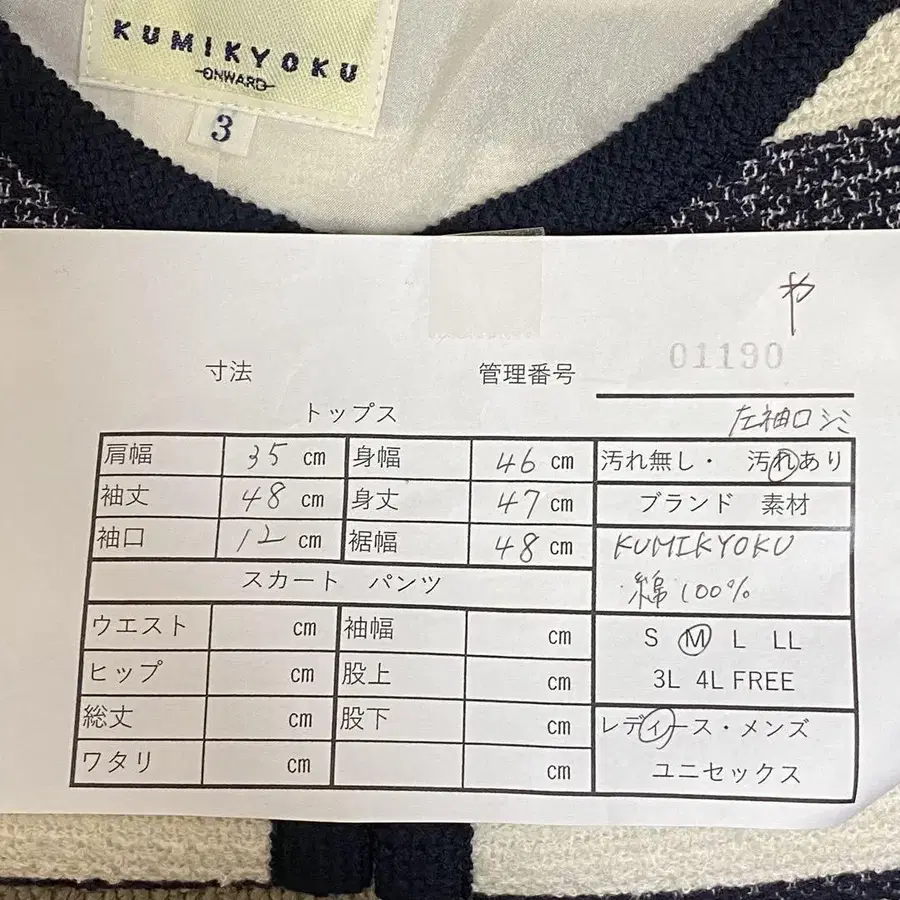 KUMIKYOKU
ONWARD
3
や
寸法 管理番号 01190
トップス 左袖口シミ
肩幅 35 cm 身幅 46 cm 汚れ無し・ 汚れあり
袖丈 48 cm 身丈 47 cm ブランド 素材
袖口 12 cm 裾幅 48 cm KUMIKYOKU
スカート パンツ 綿 100%
ウエスト cm 袖幅 cm S M L LL
ヒップ cm 股上 cm 3L 4L FREE
総丈 cm 股下 cm レディース・メンズ
ワタリ cm cm ユニセックス